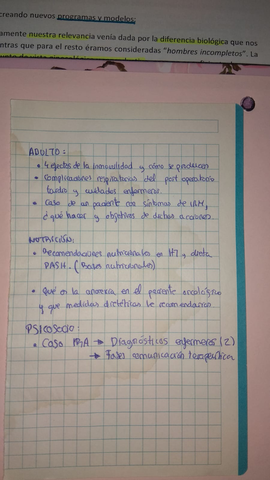 creando nuevos programas y modelos:
amente nuestra relevancia venía dada por la diferencia biológica que nos
ntras que para el resto éramos consideradas "hombres incompletos". La
ADULTO:
• 4 efectos de la inmovilidad y cómo se producen
• Complicaciones respiratorias del post operatorio
tardío y cuidados enfermeria.
• Caso de un paciente con síntomas de IAM,
¿qué hacer y objetivos de dichas acciones.
NUTRICIÓN:
• Recomendaciones nutricionales en HT y dieta
DASH. (Bases nutricionales)
• Qué es la anorexia en el paciente oncológico
y que medidas dietéticas le recomendarías.
PSICOSOCIO:
• Caso → Diagnósticos enfermeros (2)
→ Fases comunicación terapeútica